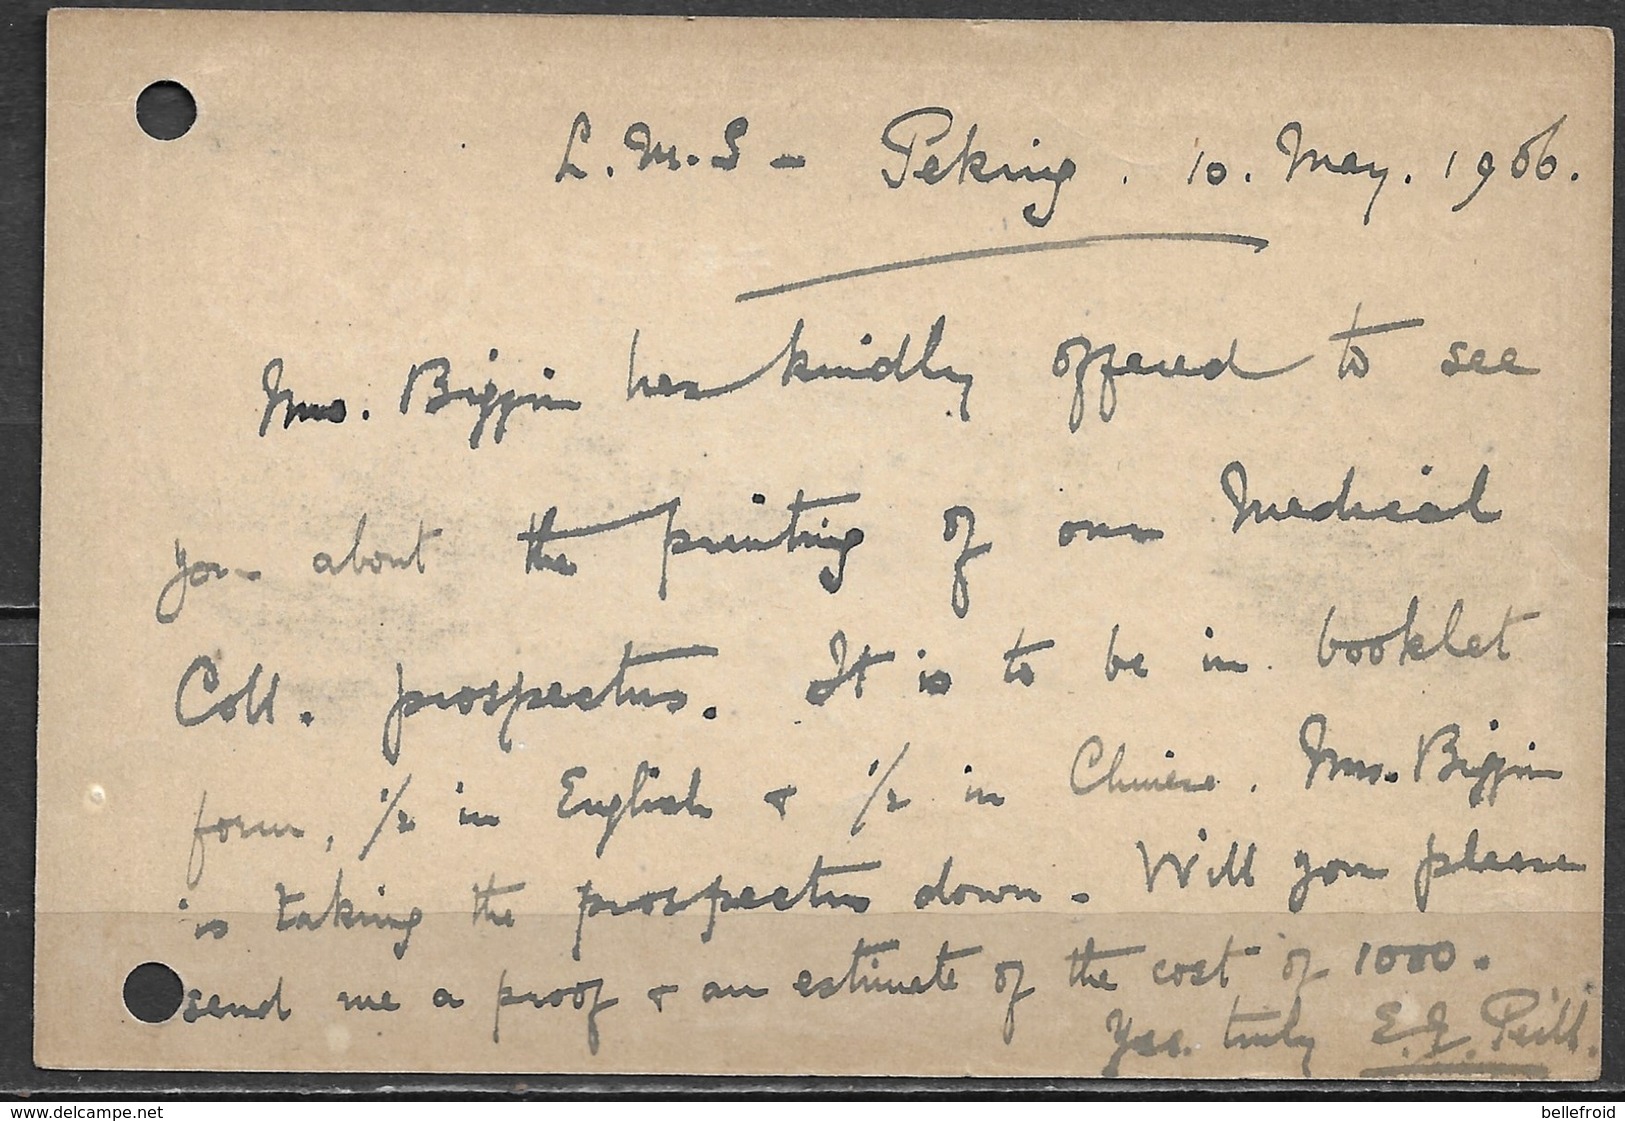 L.M.S - Peking. 10. May. 1906.
Mrs. Biggin has kindly offered to see
you about the printing of our Medical
Coll. prospectus. It is to be in booklet
form, 1/2 in English & 1/2 in Chinese. Mrs. Biggin
is taking the prospectus down. Will you please
send me a proof & an estimate of the cost of 1000.
Yrs. truly E.J. Peill.
www.delcampe.net
bellefroid